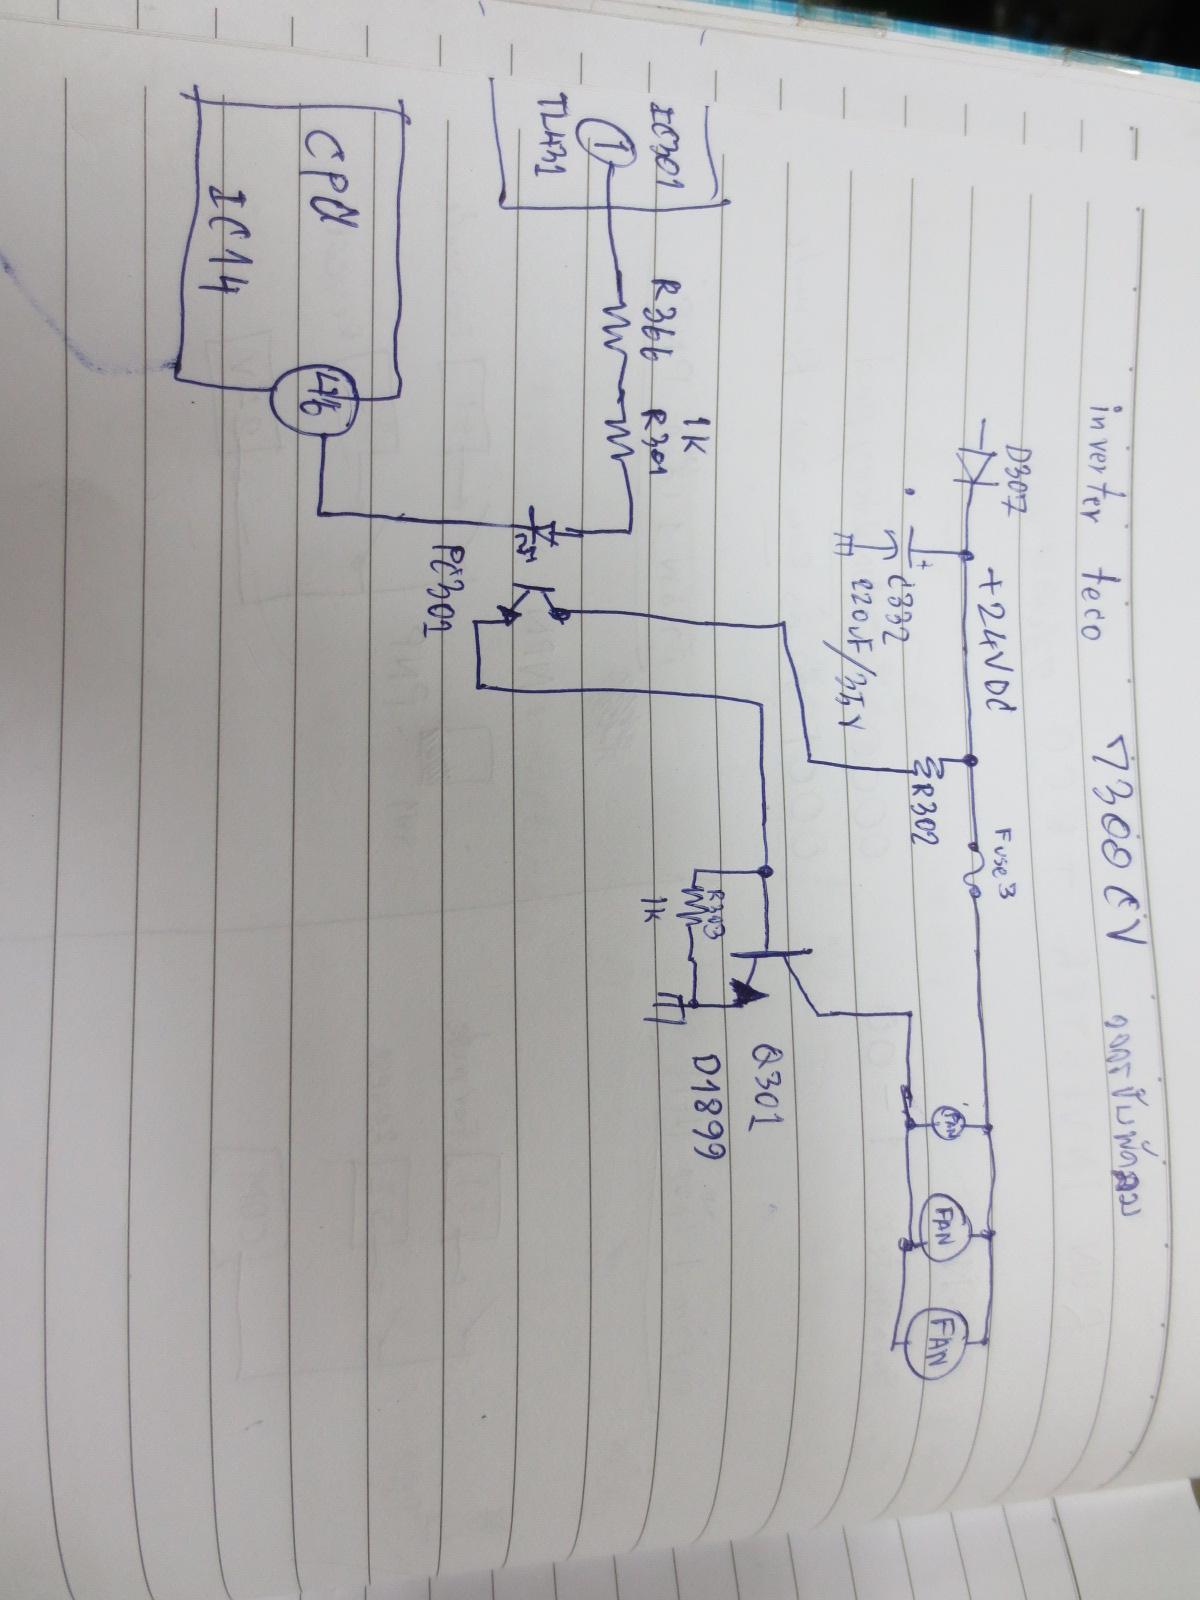 inverter teco 7300CV วงจรขับพัดลม
D307
+24VDC
Fuse3
+
C332
220uF/35V
R302
FAN
FAN
FAN
IC301
1
TL431
R366
1K
R301
R303
1K
Q301
D1899
PC301
CPU
IC14
46